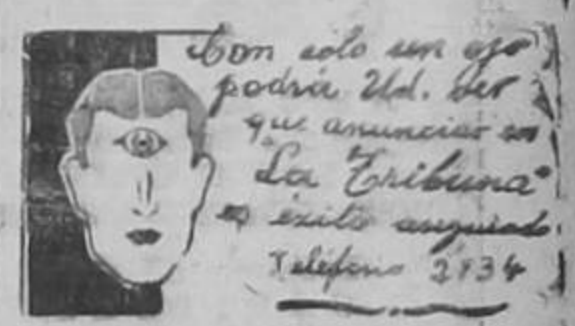 Con sólo un ojo
podrá Ud. ver
que anunciar en
"La Tribuna"
es éxito asegurado.
Teléfono 2834